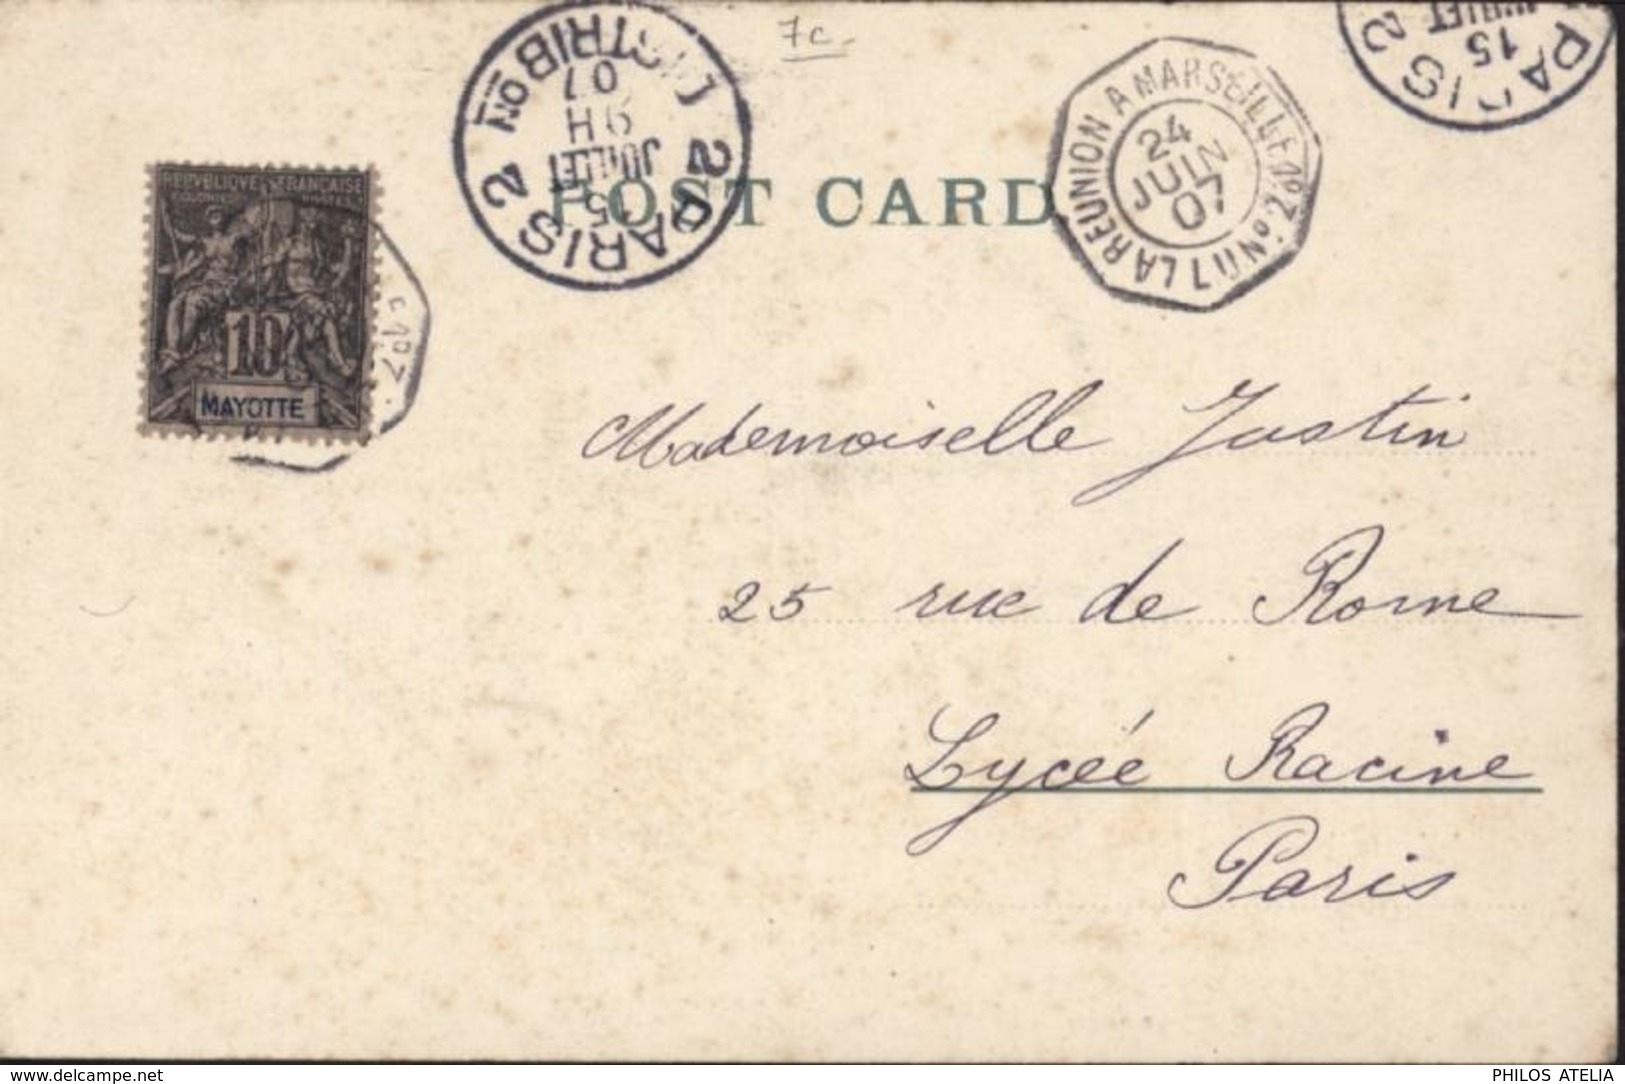 7c.
PARIS 2 DISTRIBON
15
JUILLET
9H
07
PARIS 2
15
JUILLET
LA REUNION A MARSEILLE
L.U.N° 2
24
JUIN
07
POST CARD
REPUBLIQUE FRANCAISE
COLONIES POSTES
10
MAYOTTE
07
Mademoiselle Justin
25 rue de Rome
Lycée Racine
Paris
www.delcampe.net
PHILOS ATELIA